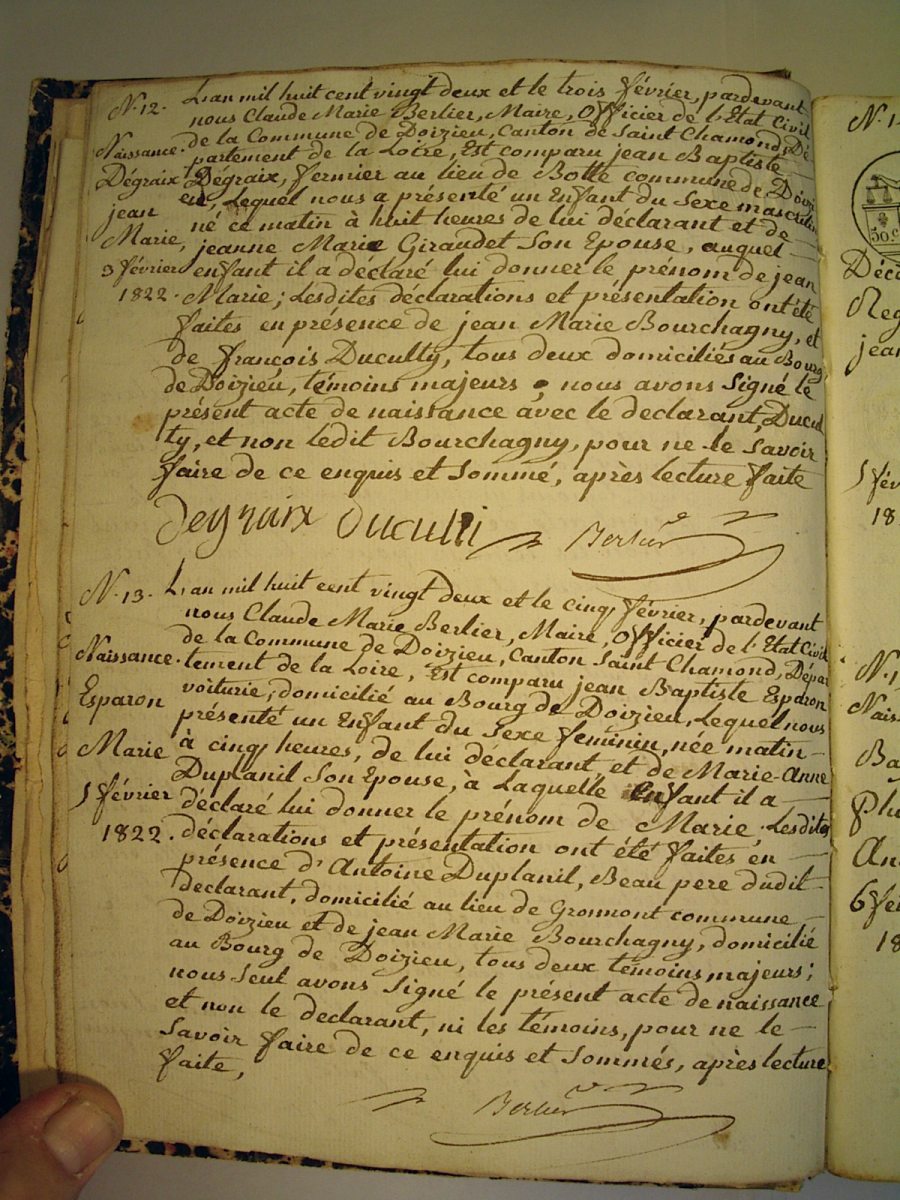 N.° 12.
Naissance.
Dégraix
jean
Marie,
3 février
1822.
L'an mil huit cent vingt deux et le trois février, pardevant
nous Claude Marie Berlier, Maire, Officier de l'Etat Civil
de la Commune de Doizieu, Canton de Saint Chamond, Dé-
partement de la Loire, Est comparu jean Baptiste
Dégraix, fermier au lieu de Botte commune de Doizi
eu, Lequel nous a présenté un Enfant du Sexe masculin
né ce matin à huit heures de lui déclarant et de
jeanne Marie Giraudet Son Epouse, auquel
enfant il a déclaré lui donner le prénom de jean
Marie; Lesdites déclarations et présentation ont été
faites en présence de jean Marie Bourchagny, et
de françois Duculty, tous deux domiciliés au Bourg
de Doizieu, témoins majeurs; nous avons Signé le
présent acte de naissance avec le declarant, Ducul
ty, et non ledit Bourchagny, pour ne le Savoir
faire de ce enquis et Sommé, après lecture faite
Degraix Duculti Berlier
N.° 13.
Naissance.
Esparon
Marie
5 février
1822.
L'an mil huit cent vingt deux et le cinq février, pardevant
nous Claude Marie Berlier, Maire, Officier de l'Etat Civil
de la Commune de Doizieu, Canton Saint Chamond, Dépar
tement de la Loire, Est comparu jean Baptiste Esparon
voiturié, domicilié au Bourg de Doizieu, Lequel nous
présenté un Enfant du Sexe feminin, née matin
à cinq heures, de lui déclarant et de Marie-Anne
Duplanil Son Epouse, à Laquelle Enfant il a
déclaré lui donner le prénom de Marie. Lesdites
déclarations et présentation ont été faites en
présence d'Antoine Duplanil, Beau pere dudit
declarant, domicilié au lieu de Gromont commune
de Doizieu et de jean Marie Bourchagny, domicilié
au Bourg de Doizieu, tous deux témoins majeurs;
nous Seul avons Signé le présent acte de naissance
et non le declarant, ni les témoins, pour ne le
Savoir faire de ce enquis et Sommés, après lecture
faite,
Berlier
N.° 1
50.c
Déc
Reg
jean
5 fév
18
N.° 1
Nais
Ba
Plu
An
6 fév
18